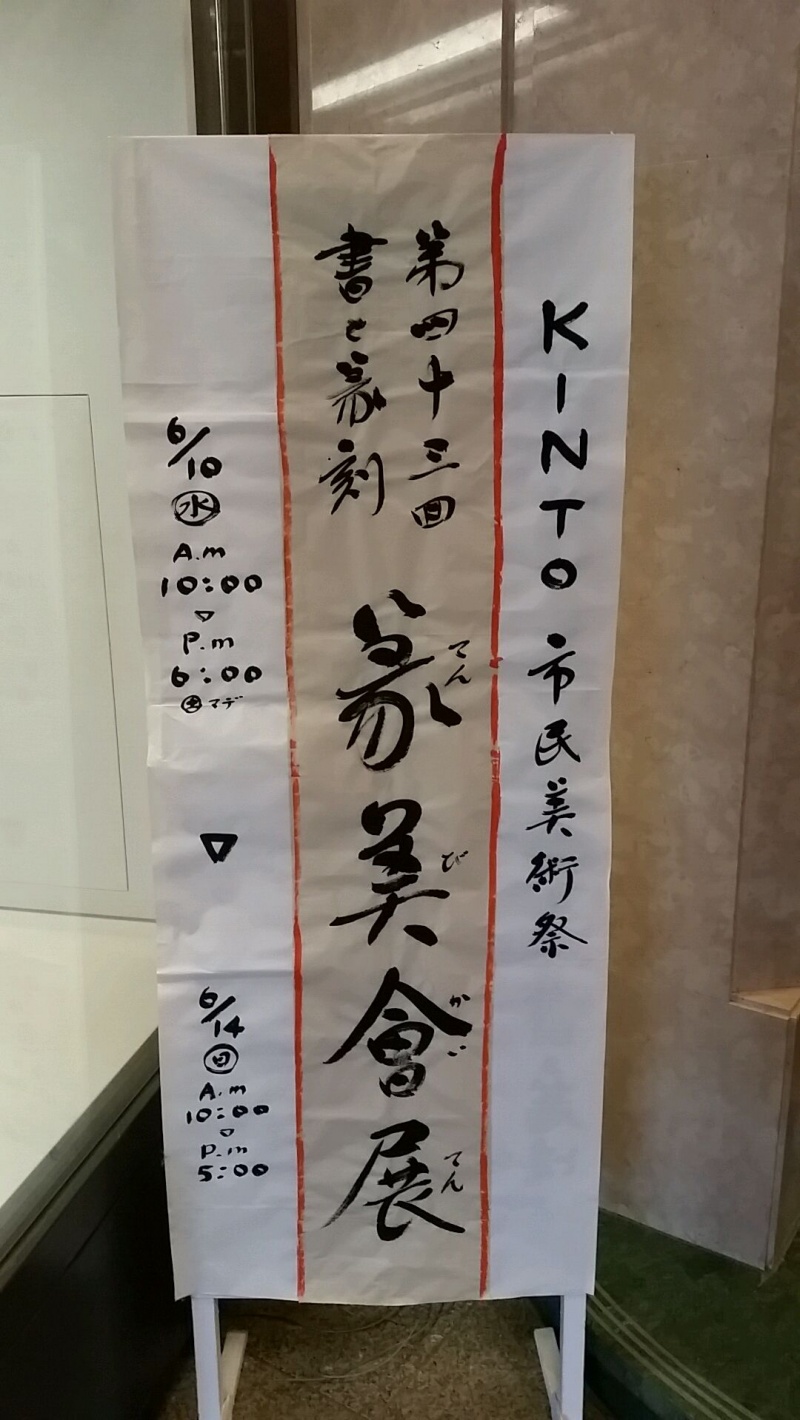 KINTO市民美術祭
第四十三回
書と篆刻
篆美會展
てんびかいてん
6/10㊌
A.m
10:00
▽
P.m
6:00
マデ
▽
6/14㊐
A.m
10:00
▽
P.m
5:00